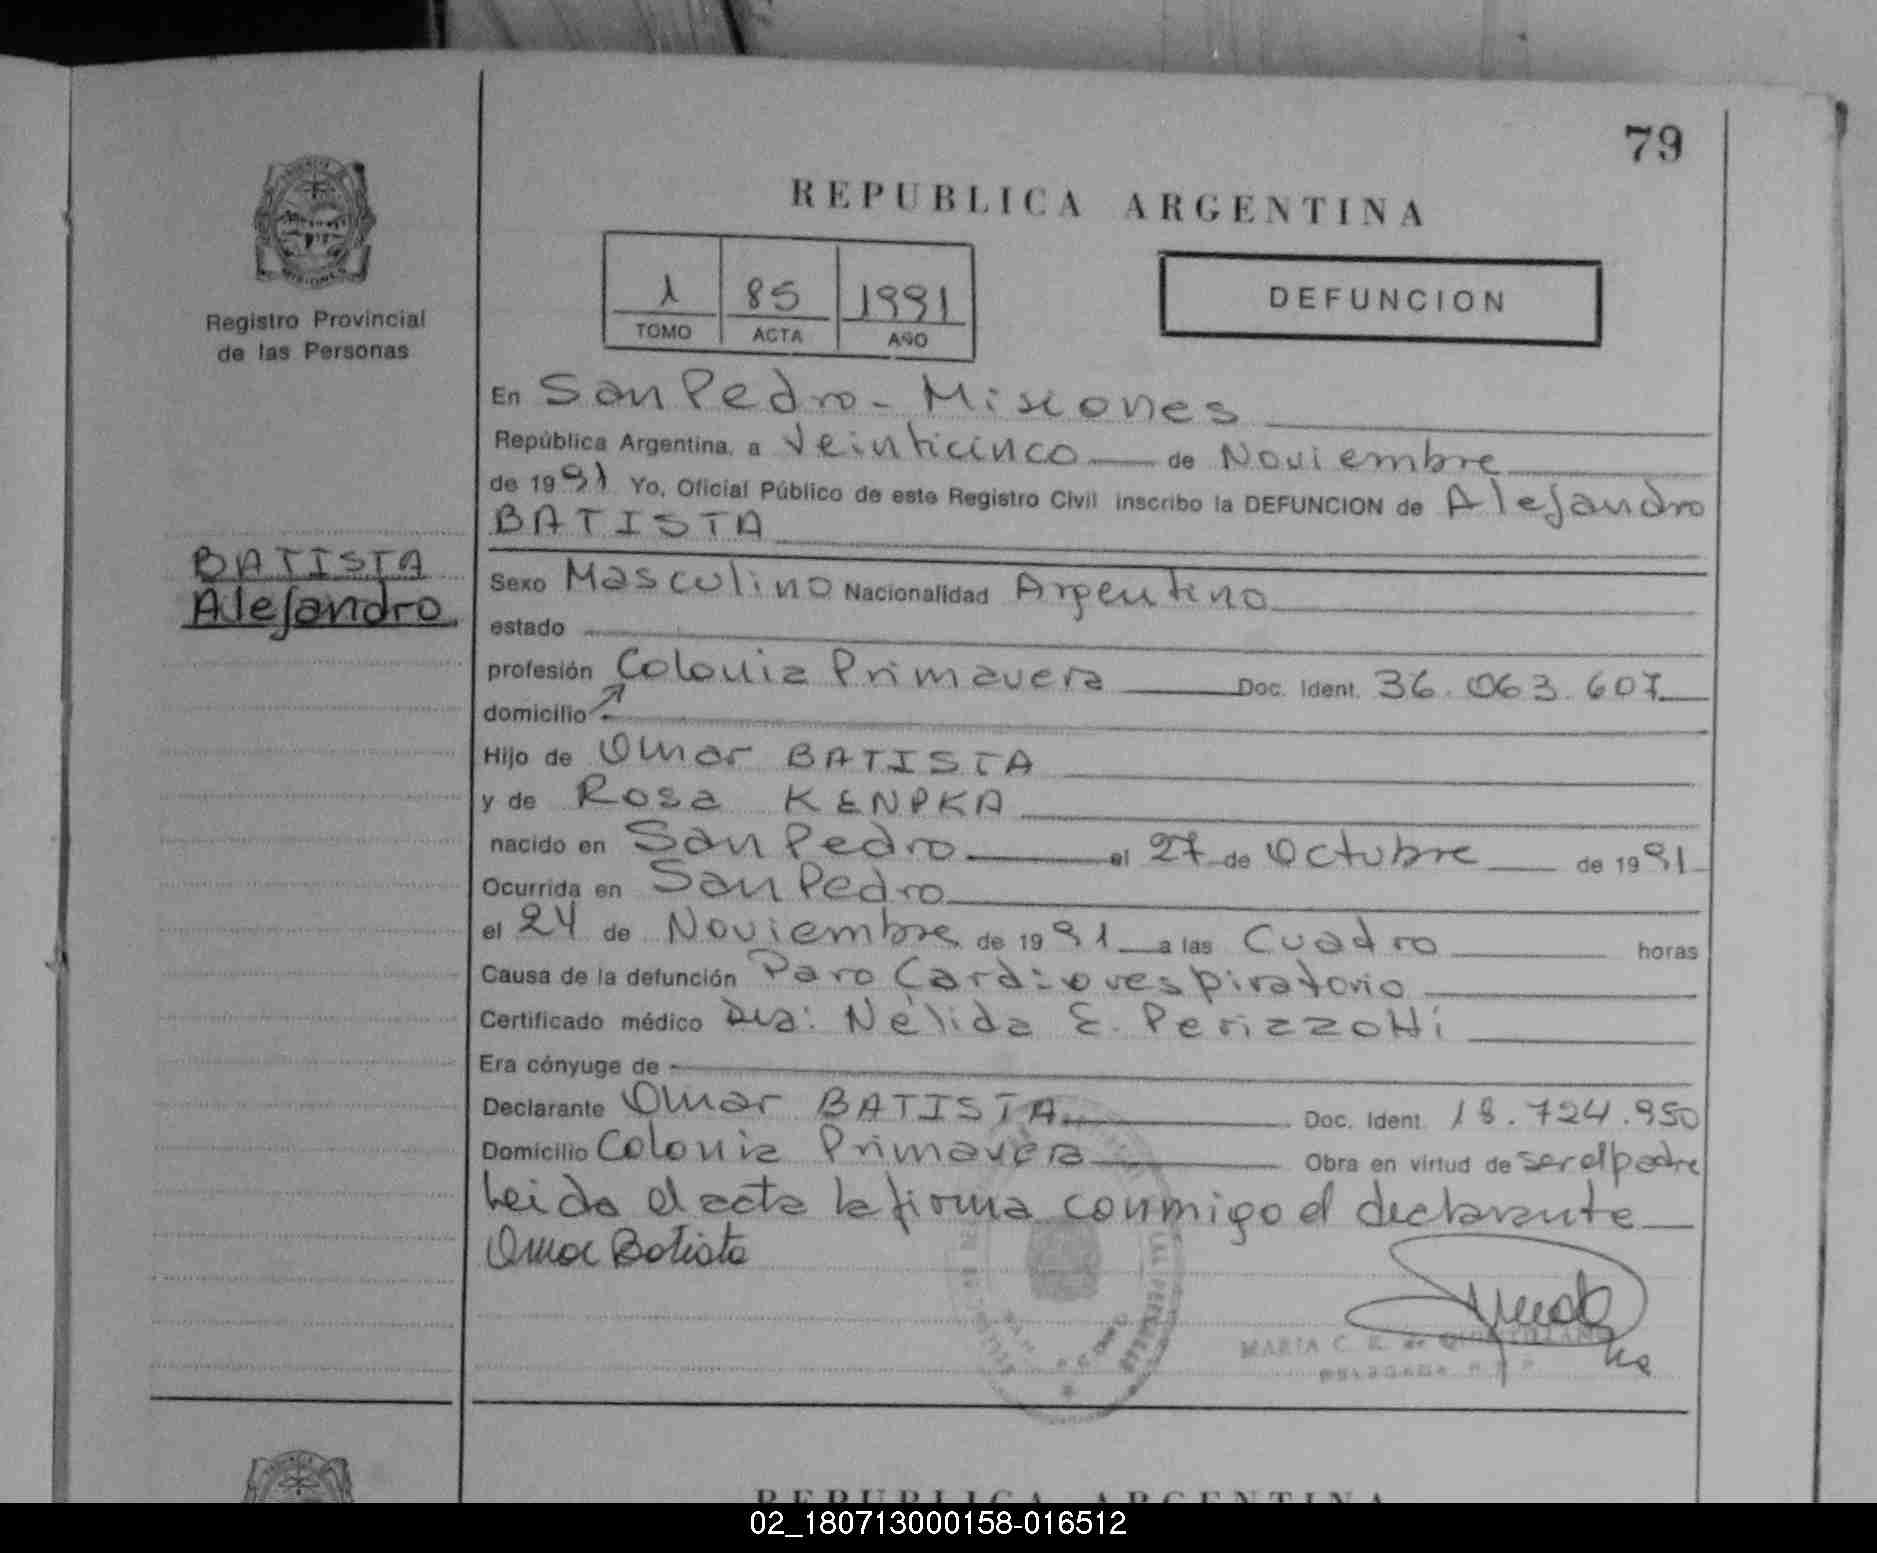 79
REPUBLICA ARGENTINA
Registro Provincial
de las Personas
1 85 1991
TOMO ACTA AÑO
DEFUNCION
En San Pedro - Misiones
República Argentina, a Veinticinco de Noviembre
de 1991 Yo, Oficial Público de este Registro Civil inscribo la DEFUNCION de Alejandro
BATISTA
BATISTA
Alejandro
Sexo Masculino Nacionalidad Argentino
estado
profesión Colonia Primavera Doc. Ident. 36.063.607
domicilio
Hijo de Omar BATISTA
y de Rosa KENPKA
nacido en San Pedro el 27 de Octubre de 1991
Ocurrida en San Pedro
el 24 de Noviembre de 1991 a las Cuadro horas
Causa de la defunción Paro Cardiorespiratorio
Certificado médico Dra: Nélida E. Perizzotti
Era cónyuge de
Declarante Omar BATISTA Doc. Ident. 18.724.950
Domicilio Colonia Primavera Obra en virtud de ser el padre
Leida el acta la firma conmigo el declarante
Omar Batista
MARIA C. R. de
DELEGADA R.P.P.
SAN PEDRO
REPUBLICA ARGENTINA
02_180713000158-016512